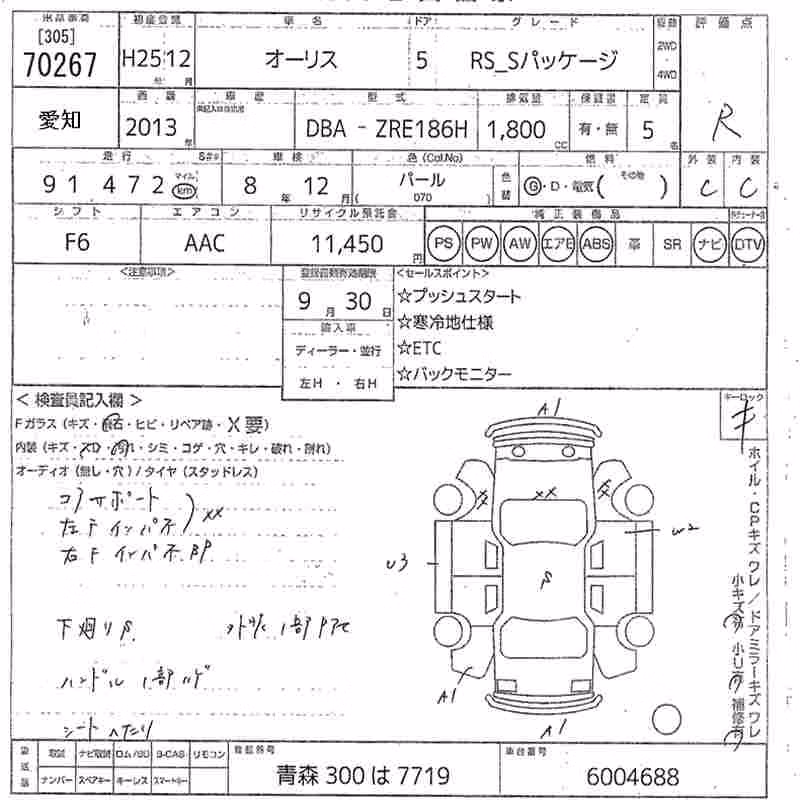 出品番号 初度登録 車名 ドア グレード 駆動 評価点
[305]
70267 H25 12 オーリス 5 RS_Sパッケージ 2WD ・ 4WD
年 月
愛知 西暦 車歴 型式 排気量 保証書 定員
2013年 DBA - ZRE186H 1,800 cc 有・無 5名 R
走行 車検 色(Col.No) 燃料 外装 内装
91,472 マイル km 8年 12月 パール 色替 G・D・電気( その他 ) C C
( 070
シフト エアコン リサイクル預託金 純正装備品
F6 AAC 11,450円 PS PW AW エアB ABS 革 SR ナビ DTV
<注意事項> 登録書類有効期限 <セールスポイント>
9月 30日 ☆プッシュスタート
輸入車 ☆寒冷地仕様
ディーラー・並行 ☆ETC
左H ・ 右H ☆バックモニター
< 検査員記入欄 > キーロック
Fガラス (キズ・飛石・ヒビ・リペア跡・X要) キ
内装 (キズ・スレ・汚れ・シミ・コゲ・穴・キレ・破れ・削れ)
オーディオ (無し・穴) / タイヤ (スタッドレス)
コアサポート
左F インパネ XX
右F インパネ BP
下廻りS
ハンドル 1部ハゲ
シート ヘタリ
A1
XX
W2
U3
A1
A1
ホイル・CPキズ ワレ / ドアミラーキズ ワレ
小キズ有 小U有 補修有
登録番号 車台番号
取説 ナビ取説 ロム/SD B-CAS リモコン
ナンバー スペアキー キーレス スマートキー
青森 300 は 7719 6004688